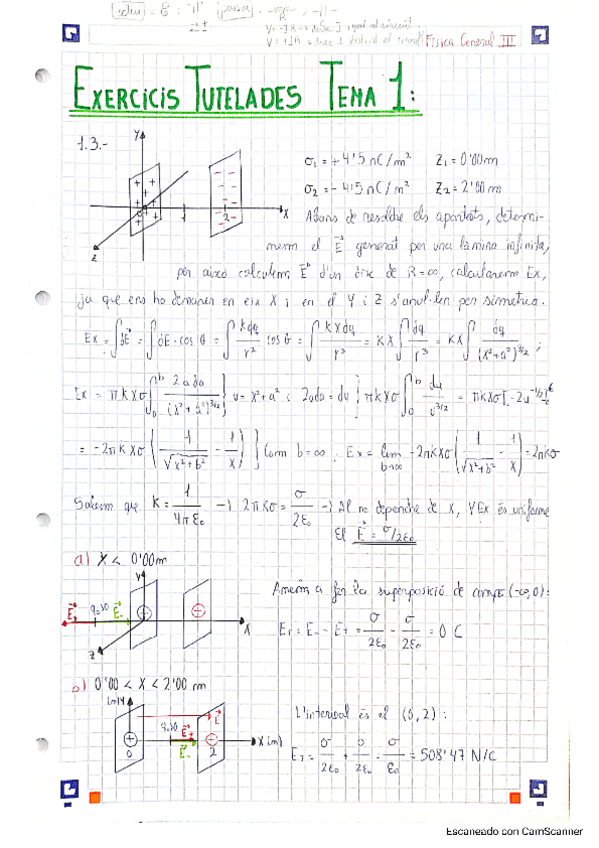 Física General III
EXERCICIS TUTELADES TEMA 1:
1.3.-
Y
X
Z
1
2
σ₁ = +4'5 nC/m² Z₁ = 0'00 m
σ₂ = -4'5 nC/m² Z₂ = 2'00 m
Abans de resoldre els apartats, determi-
narem el E⃗ generat per una làmina infinita,
per això calcularem E⃗ d'un disc de R=∞, calcularem Ex,
ja que ens ho demanen en eix X i en el Y i Z s'anul·len per simetria.
Ex = ∫dE⃗ = ∫dE · cos θ = ∫ k dq / r² cos θ = ∫ k x dq / r³ = kx ∫ dq / r³ = kx ∫ dq / (x²+a²)^3/2 ;
Ex = πkxσ ∫₀ᵇ 2a da / (x²+a²)^3/2 } u = x²+a² ; 2ada = du } πkxσ ∫₀ᵇ du / u^3/2 = πkxσ [-2u^-1/2]
= -2πkxσ ( 1/√(x²+b²) - 1/x ) } Com b=∞ : Ex = lim b→∞ -2πkxσ ( 1/√(x²+b²) - 1/x ) = 2πkσ
Sabem que K = 1/4πε₀ → 2πKσ = σ/2ε₀ → Al no dependre de X, Ex és uniforme
El E⃗ = σ/2ε₀
a) X < 0'00 m
Y
X
Z
E⃗
E⃗₋
Anem a fer la superposició de camps (-∞,0):
E_T = E₋ - E₊ = σ/2ε₀ - σ/2ε₀ = 0 C
b) 0'00 < X < 2'00 m
(m)Y
X (m)
0
2
E⃗
E⃗₋
L'interval és el (0,2):
E_T = σ/2ε₀ + σ/2ε₀ = σ/ε₀ = 508'47 N/C
Escaneado con CamScanner